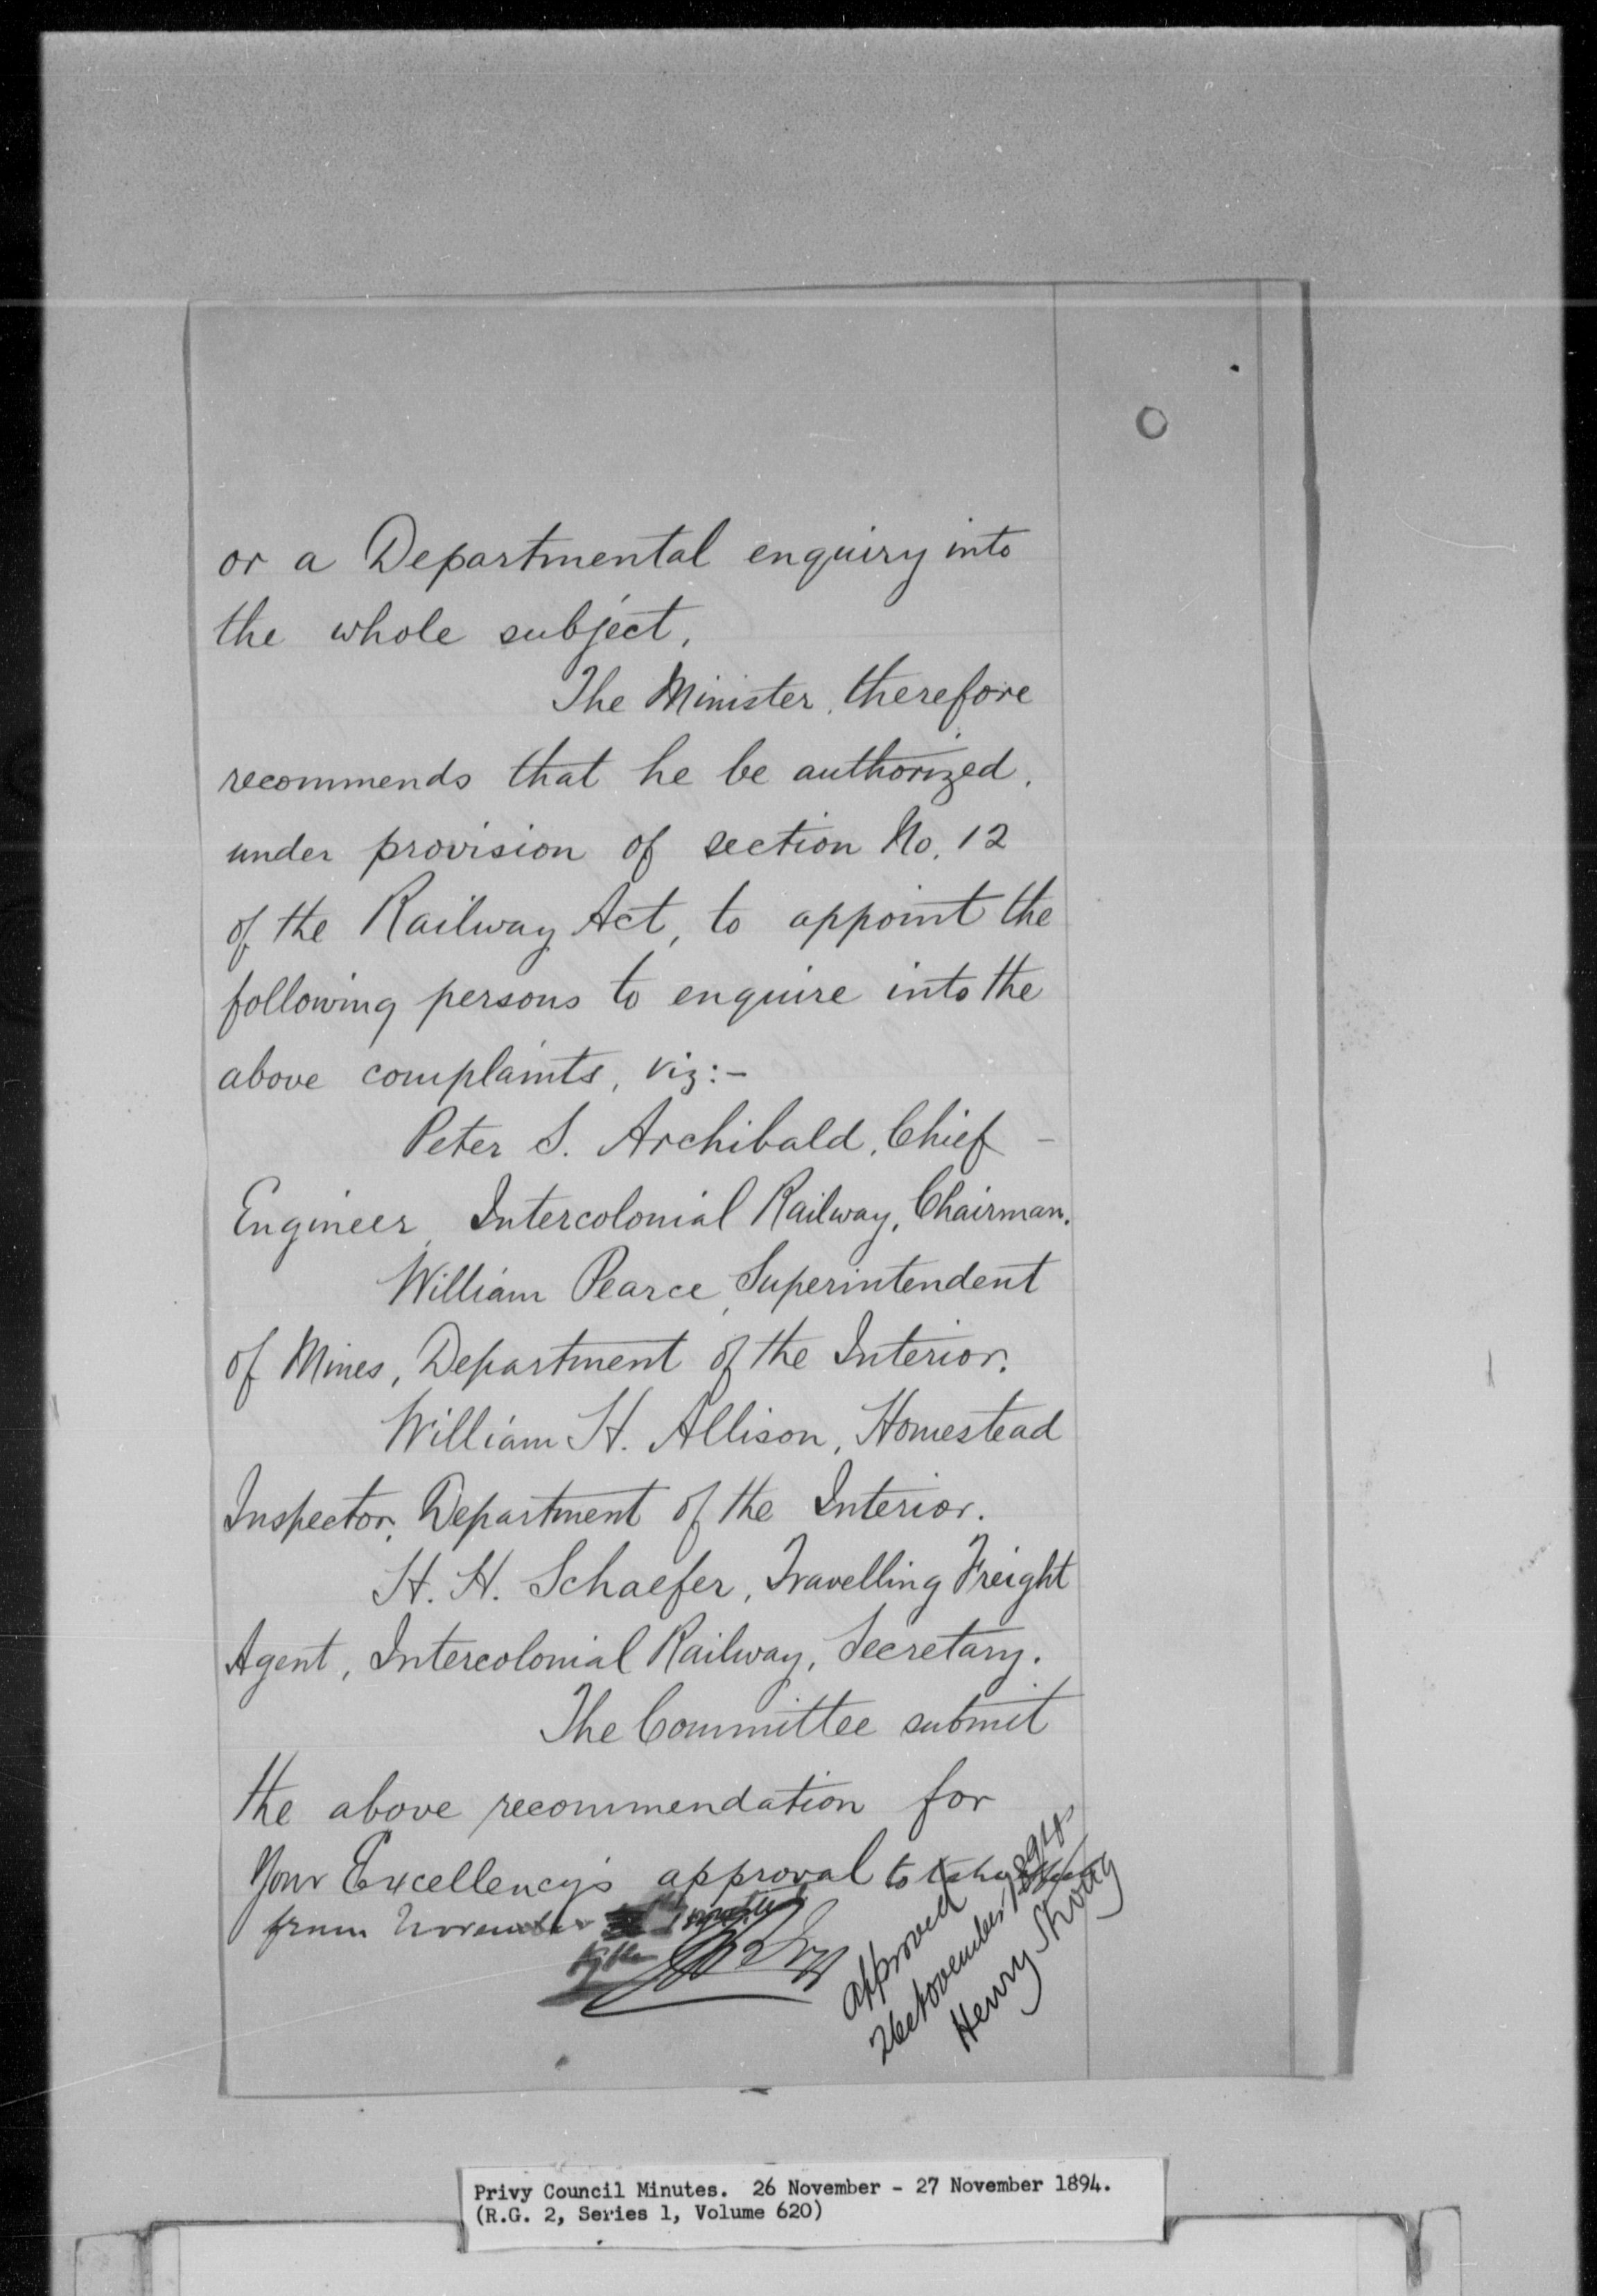 or a Departmental enquiry into
the whole subject.
The Minister, therefore
recommends that he be authorized,
under provision of section No. 12
of the Railway Act, to appoint the
following persons to enquire into the
above complaints, viz:-
Peter S. Archibald, Chief -
Engineer, Intercolonial Railway, Chairman.
William Pearce, Superintendent
of Mines, Department of the Interior.
William H. Allison, Homestead
Inspector, Department of the Interior.
H. H. Schaefer, Travelling Freight
Agent, Intercolonial Railway, Secretary.
The Committee submit
the above recommendation for
Your Excellency's approval to take effect
from November
approved
26 November 1894
Henry Strong
Privy Council Minutes. 26 November - 27 November 1894.
(R.G. 2, Series 1, Volume 620)